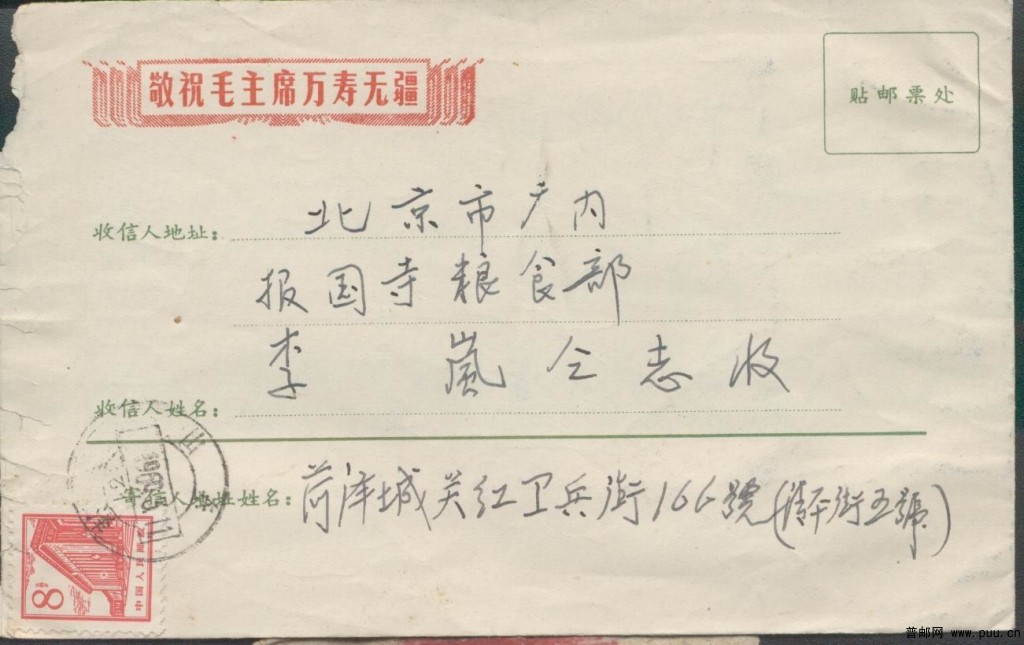 敬祝毛主席万寿无疆
贴邮票处
收信人地址：北京市广内
报国寺粮食部
收信人姓名：李岚仝志收
寄信人地址姓名：菏泽城关红卫兵街166號(清平街五號)
中国人民邮政
8分
普邮网 www.puu.cn